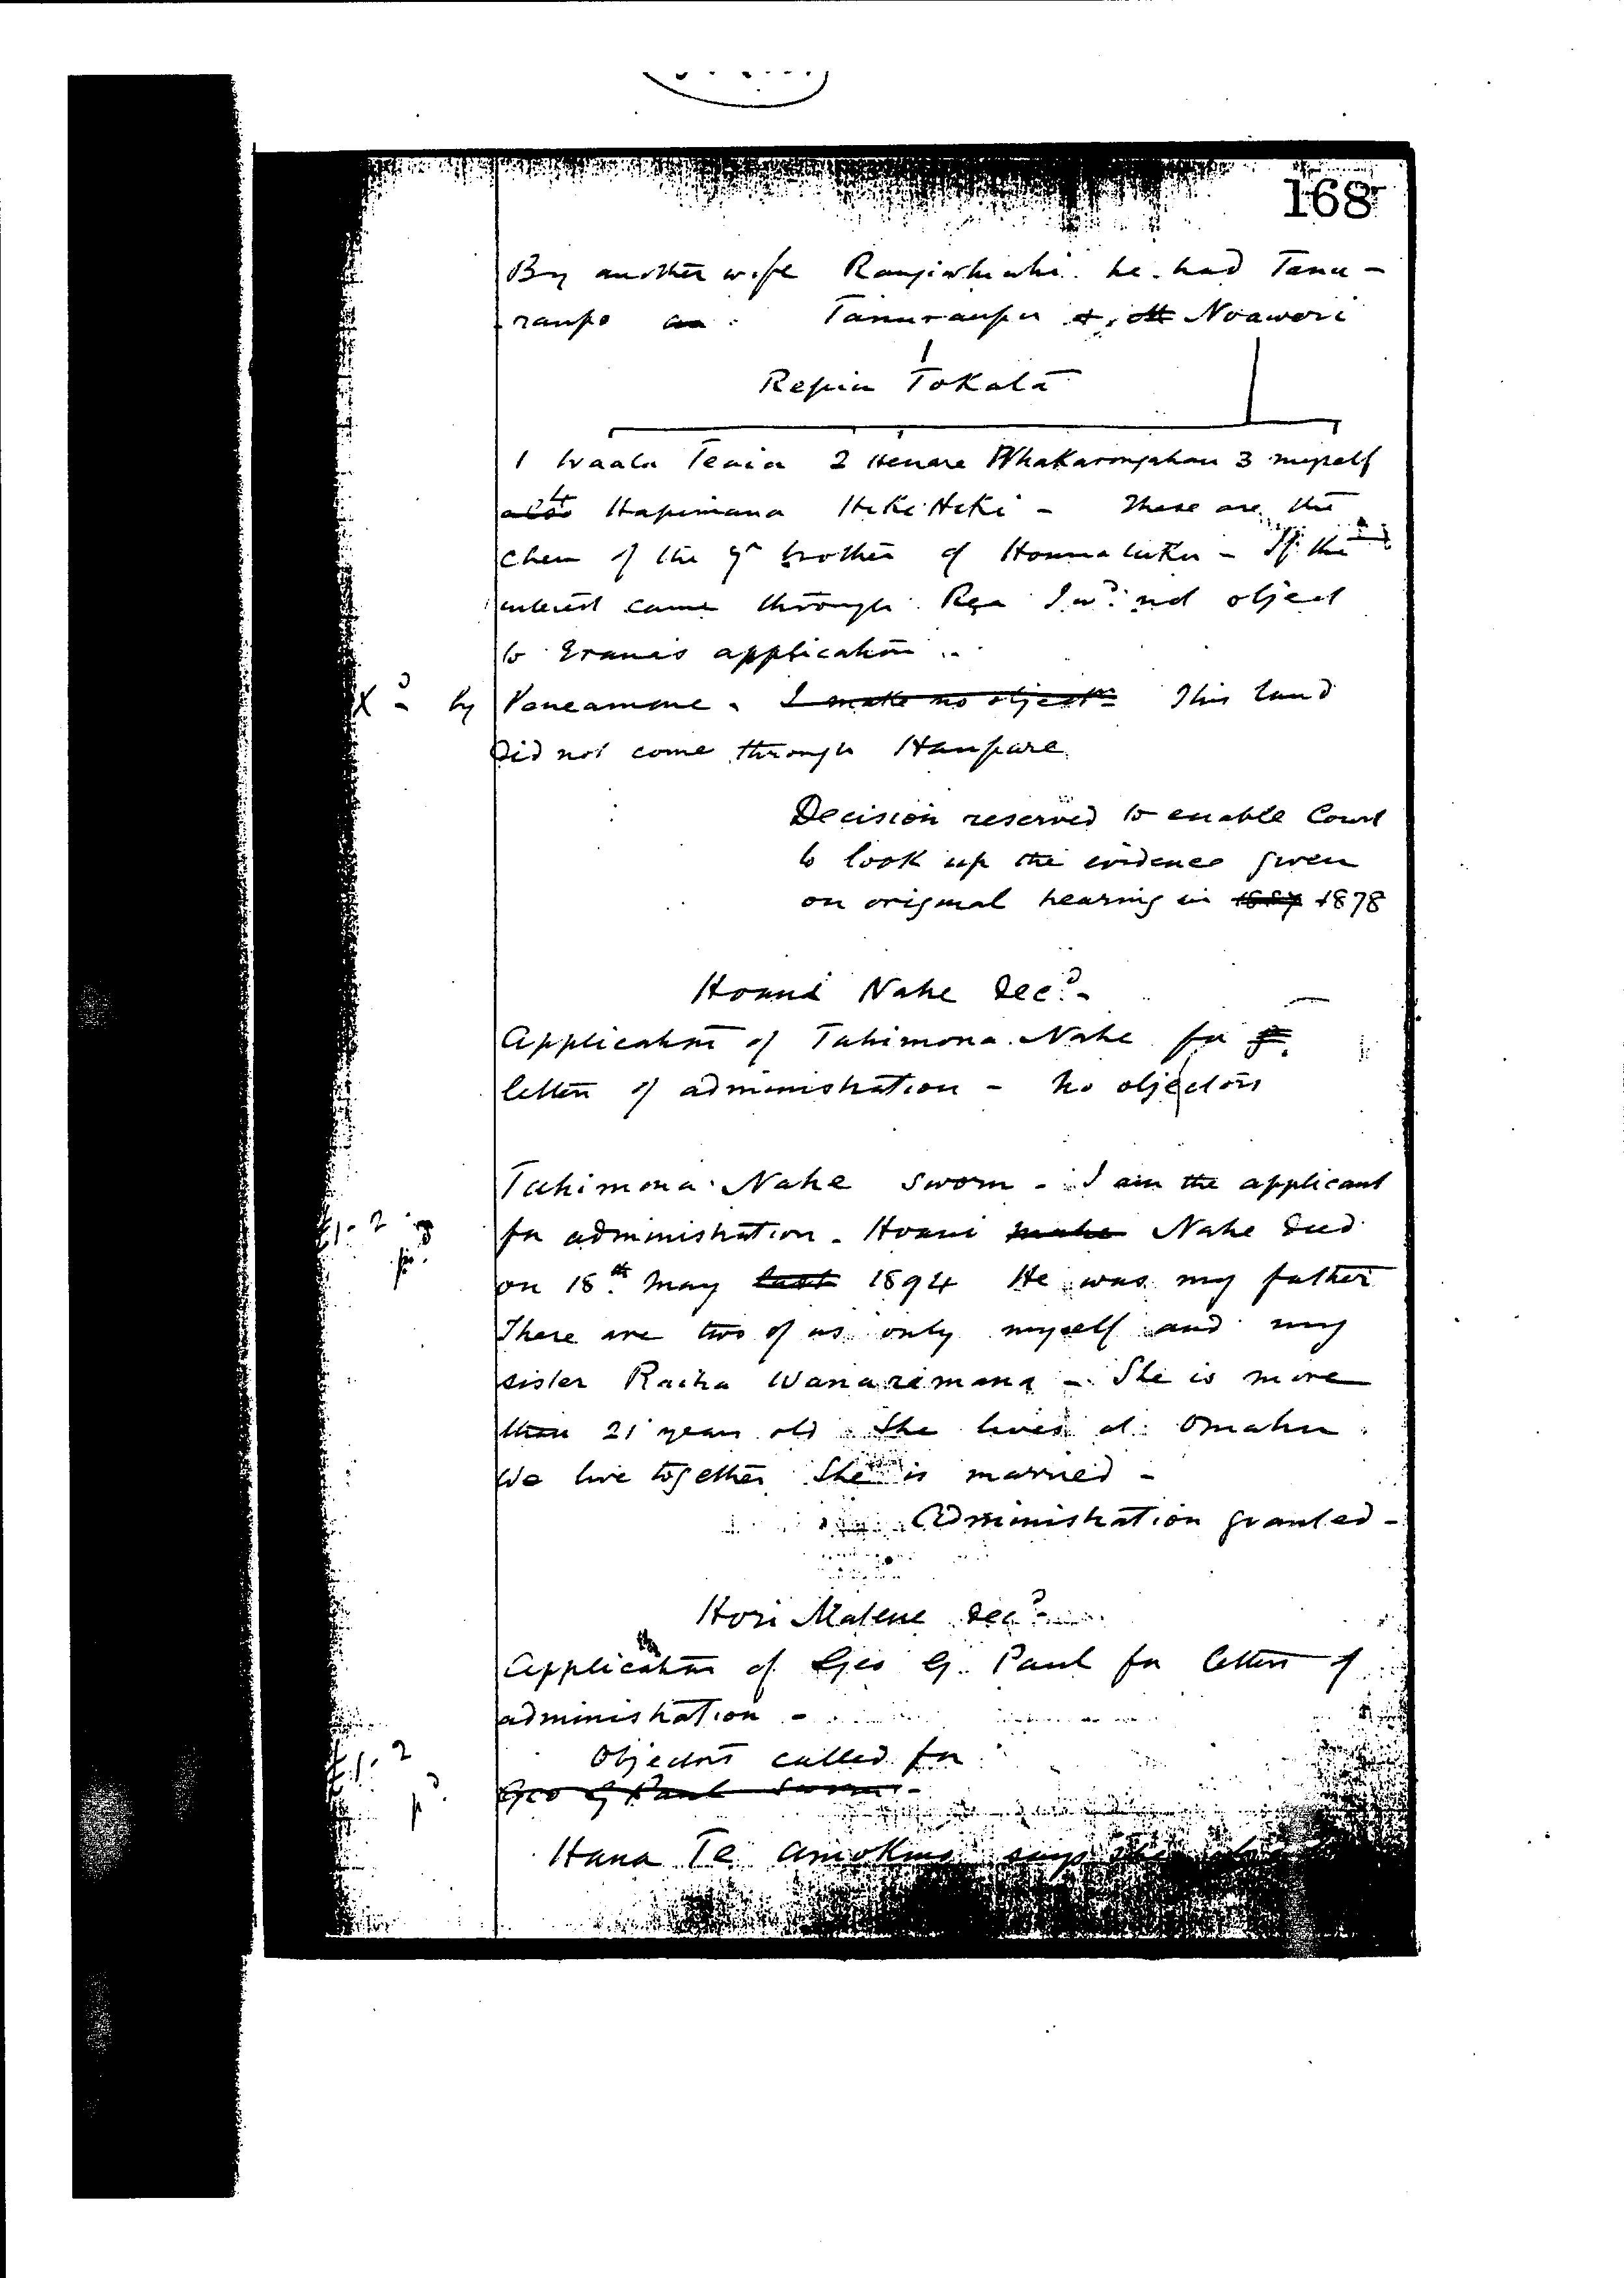 168
By another wife Rangiwhiwhi he had Tanu-
raupo Tanuraupo & Noawori
Repia Tokata
1 Waata Tenia 2 Henare Whakarongohau 3 myself
4 Hapimana HekiHeki - These are the
chen of the yr brother of - If the
interest came through Rea I wd not object
to application
Xd by . I make no objectn This land
did not come through Haupare
Decision reserved to enable Court
to look up the evidence given
on original hearing in 1878
Hoani Nahe decd -
Application of Tahimona Nahe for
letters of administration - No objectors
Tahimona Nahe sworn - I am the applicant
for administration - Hoani Nahe died
£1-2 pd
on 18th May last 1894 He was my father
There are two of us only myself and my
sister Raiha Wanarimana - She is more
than 21 years old She lives at Omahu
We live together She is married -
Administration granted -
Hori Matene decd -
Application of Geo G. Paul for letters of
administration -
£1-2 pd
Objectors called for
Geo G Paul sworn -
Hana Te says